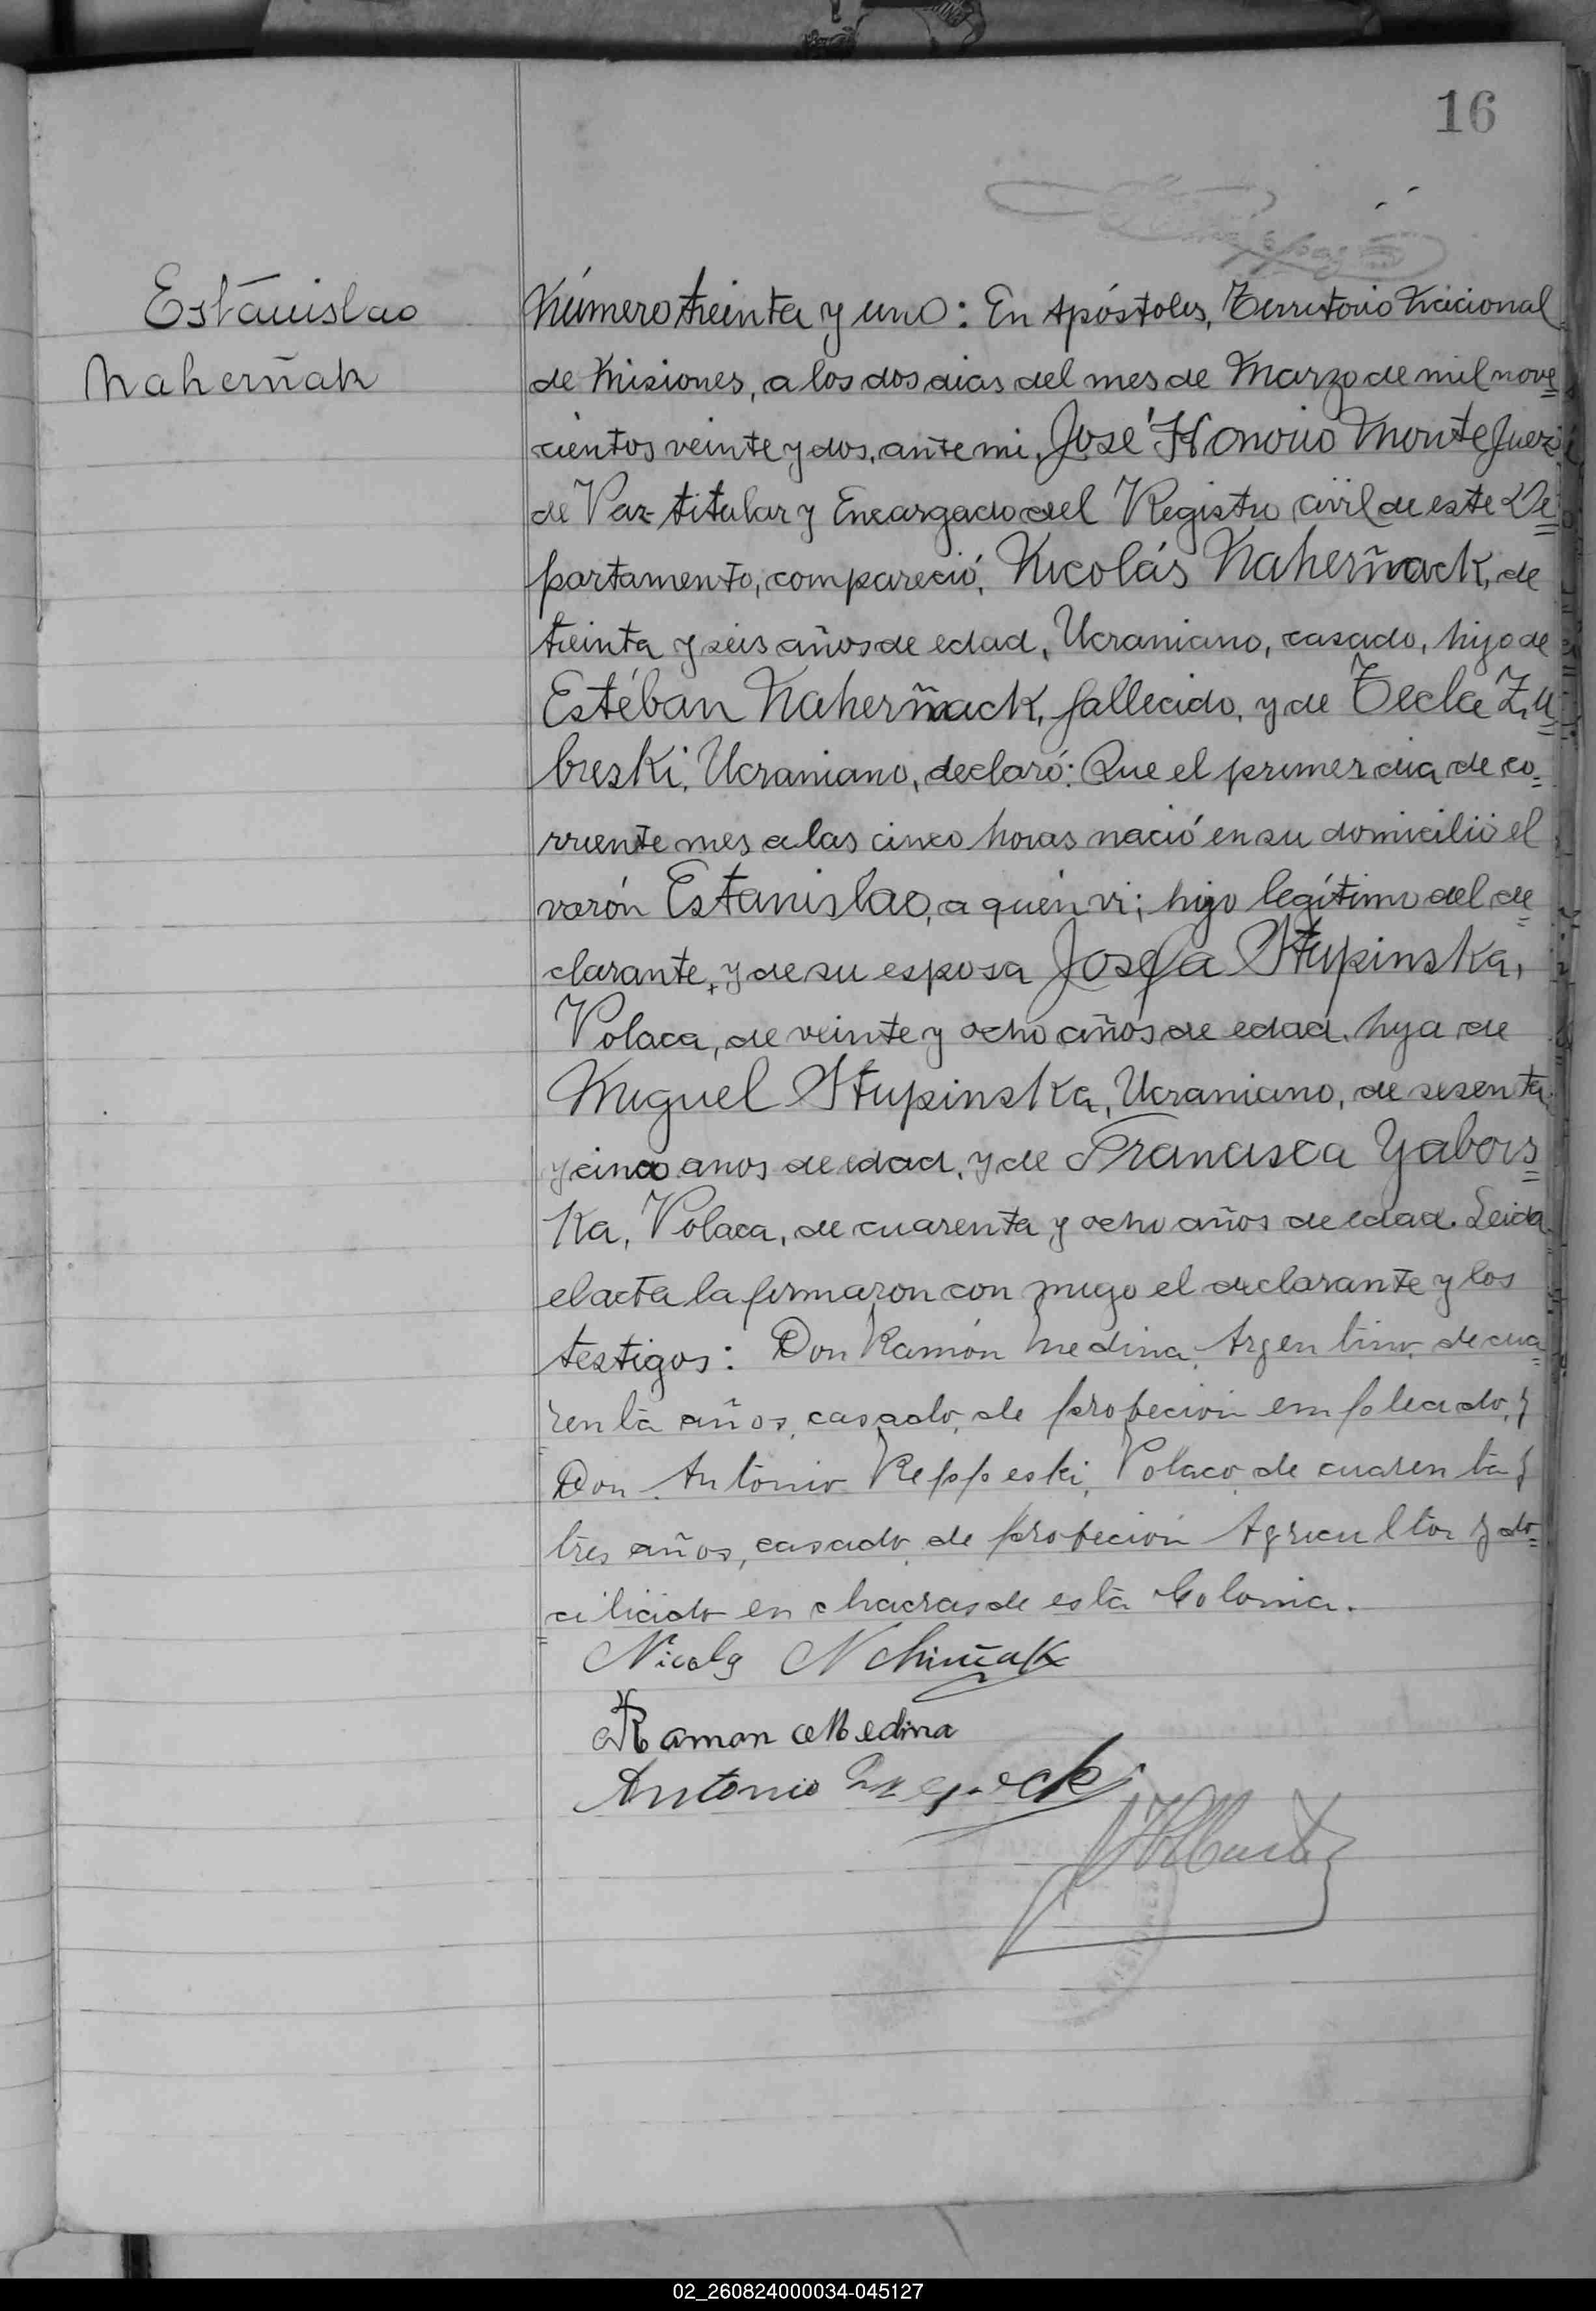 16
Estanislao
Naherñak
Número treinta y uno: En Apóstoles, Territorio Nacional
de Misiones, a los dos dias del mes de Marzo de mil nove=
cientos veinte y dos, ante mi, José Honorio Monte Juez
de Paz titular y Encargado del Registro civil de este De=
partamento, compareció, Nicolás Naherñack, de
treinta y seis años de edad, Ucraniano, casado, hijo de
Estéban Naherñack, fallecido, y de Tecla Zu=
breski, Ucraniano, declaró: Que el primer dia de co=
rriente mes a las cinco horas nació en su domicilio el
varón Estanislao, a quien vi; hijo legítimo del de=
clarante, y de su esposa Josefa Stupinska,
Polaca, de veinte y ocho años de edad, hija de
Miguel Stupinska, Ucraniano, de sesenta
y cinco anos de edad, y de Francisca Yabors=
ka, Polaca, de cuarenta y ocho años de edad. Leida
el acta la firmaron con migo el declarante y los
testigos: Don Ramón Medina, Argentino, de cua=
renta años, casado, de profecion empleado, y
Don Antonio Reppeski, Polaco, de cuarenta y
tres años, casado, de profeción Agricultor y do=
ciliado en chacras de esta Colonia.
Nicola
Ramon Medina
Antonio
02_260824000034-045127